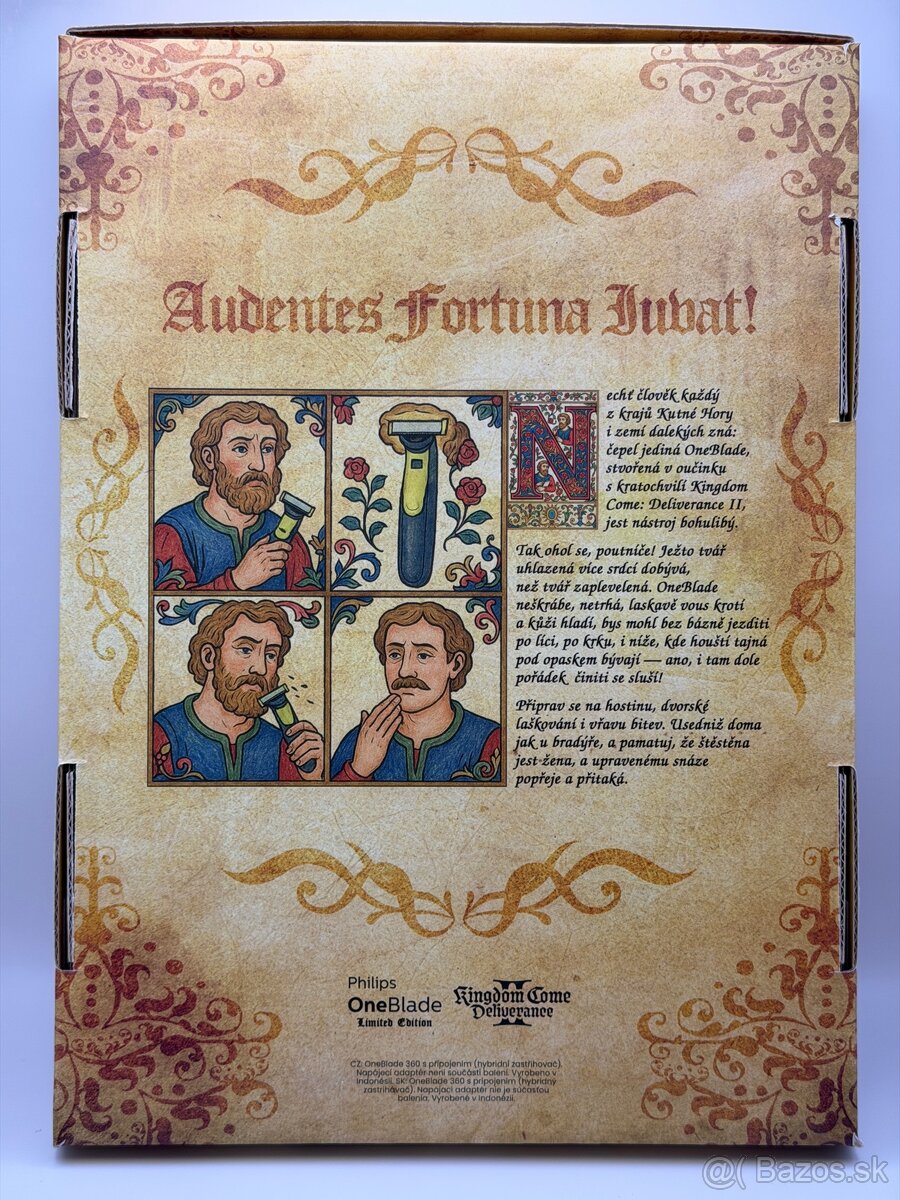 Audentes Fortuna Iuvat!
Nechť člověk každý
z krajů Kutné Hory
i zemí dalekých zná:
čepel jediná OneBlade,
stvořená v oučinku
s kratochvílí Kingdom
Come: Deliverance II,
jest nástroj bohulibý.
Tak ohol se, poutníče! Ježto tvář
uhlazená více srdcí dobývá,
než tvář zaplevelená. OneBlade
neškrábe, netrhá, laskavě vous krotí
a kůži hladí, bys mohl bez bázně jezditi
po líci, po krku, i níže, kde houští tajná
pod opaskem bývají — ano, i tam dole
pořádek činiti se sluší!
Připrav se na hostinu, dvorské
laškování i vřavu bitev. Usedniž doma
jak u bradýře, a pamatuj, že štěstěna
jest žena, a upravenému snáze
popřeje a přitaká.
Philips
OneBlade
Limited Edition
Kingdom Come
Deliverance
II
CZ: OneBlade 360 s připojením (hybridní zastřihovač).
Napájecí adaptér není součástí balení. Vyrobeno v
Indonésii. SK: OneBlade 360 s pripojením (hybridný
zastrihávač). Napájací adaptér nie je súčasťou
balenia. Vyrobené v Indonézii.
@( Bazos.sk